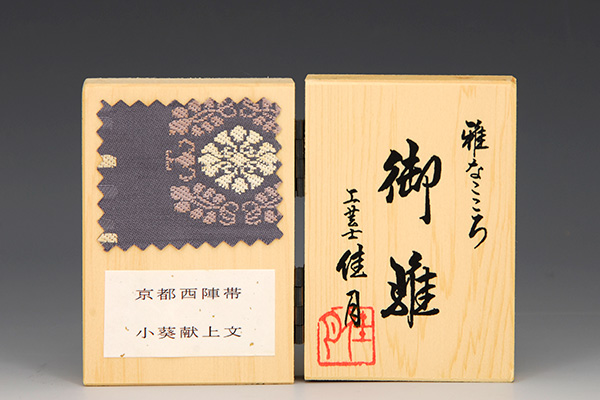 雅なこころ
御雛
工芸士 佳月
佳月
京都西陣帯
小葵献上文